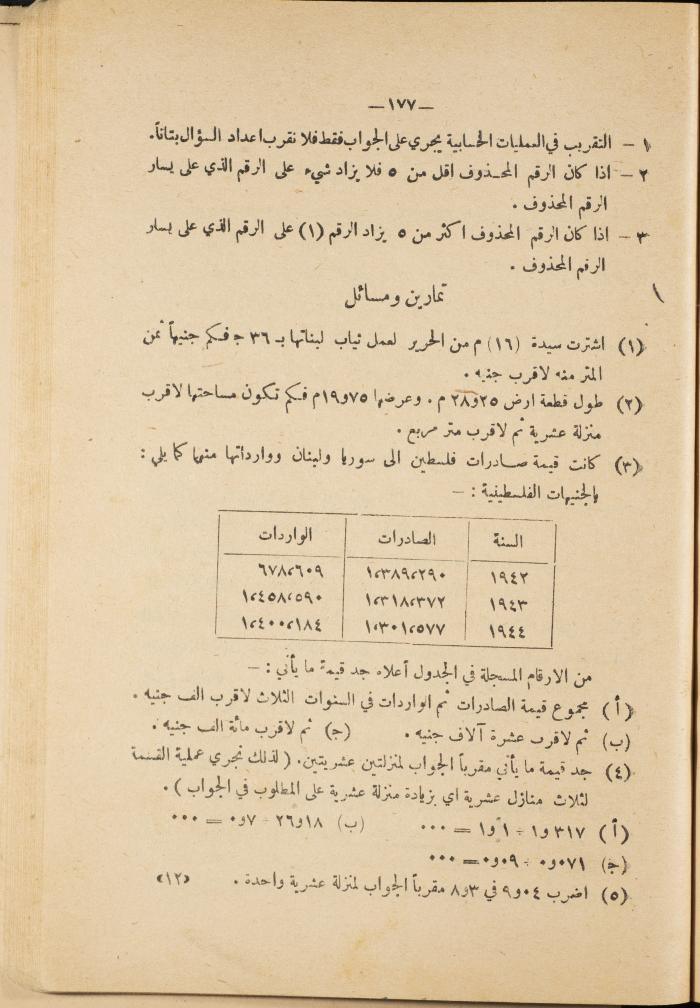 — ١٧٧ —
١ — التقريب في العمليات الحسابية يجري على الجواب فقط فلا نقرب اعداد السؤال بتاتاً.
٢ — اذا كان الرقم المحذوف اقل من ٥ فلا يزاد شيء على الرقم الذي على يسار
الرقم المحذوف .
٣ — اذا كان الرقم المحذوف اكثر من ٥ يزاد الرقم (١) على الرقم الذي على يسار
الرقم المحذوف .
تمارين ومسائل
(١) اشترت سيدة (١٦) م من الحرير لعمل ثياب لبناتها بـ ٣٦ ج فكم جنيهاً ثمن
المتر منه لاقرب جنيه .
(٢) طول قطعة ارض ٢٥و٢٨ م . وعرضها ٧٥و١٩ م فكم تكون مساحتها لاقرب
منزلة عشرية ثم لاقرب متر مربع .
(٣) كانت قيمة صادرات فلسطين الى سوريا ولبنان ووارداتها منهما كما يلي :
بالجنيهات الفلسطينية : —
السنة الصادرات الواردات
١٩٤٢ ١،٣٨٩،٢٩٠ ٦٧٨،٦٠٩
١٩٤٣ ١،٣١٨،٣٧٢ ١،٤٥٨،٥٩٠
١٩٤٤ ١،٣٠١،٥٧٧ ١،٤٠٠،١٨٤
من الارقام المسجلة في الجدول أعلاه جد قيمة ما يأتي : —
(أ) مجموع قيمة الصادرات ثم الواردات في السنوات الثلاث لاقرب الف جنيه .
(ب) ثم لاقرب عشرة آلاف جنيه . (ج) ثم لاقرب مائة الف جنيه .
(٤) جد قيمة ما يأتي مقرباً الجواب لمنزلتين عشريتين . ( لذلك تجري عملية القسمة
لثلاث منازل عشرية اي بزيادة منزلة عشرية على المطلوب في الجواب ) .
(أ) ٣١٧و١ ÷ ١و١ = ٠٠٠ (ب) ١٨و٢٦ ÷ ٧و٠ = ٠٠٠
(ج) ٠٧١و٠ ÷ ٠٩و٠ = ٠٠٠
(٥) اضرب ٠٤و٩ في ٣و٨ مقرباً الجواب لمنزلة عشرية واحدة . «١٢»